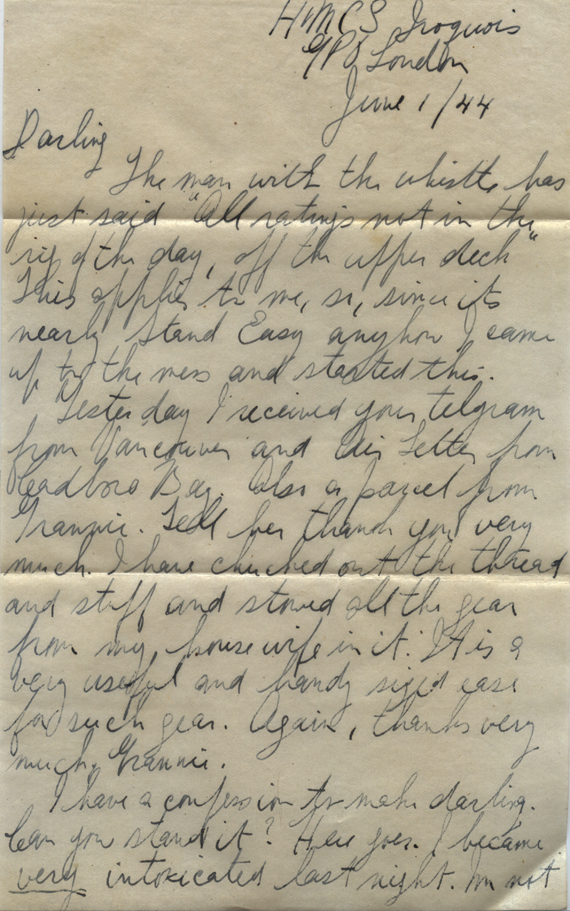 HMCS Iroquois
GPO London
June 1/44
Darling
The man with the whistle has
just said "All ratings not in the
rig of the day, off the upper deck"
This applies to me, so, since its
nearly Stand Easy anyhow I came
up to the mess and started this.
Yesterday I received your telgram
from Vancouver and Air Letter from
Cadboro Bay. Also a parcel from
Grannie. Tell her thank you very
much. I have chucked out the thread
and stuff and stowed all the gear
from my housewife in it. It is a
very useful and handy sized case
for such gear. Again, thanks very
much, Grannie.
I have a confession to make darling.
Can you stand it? Here goes. I became
very intoxicated last night. Im not